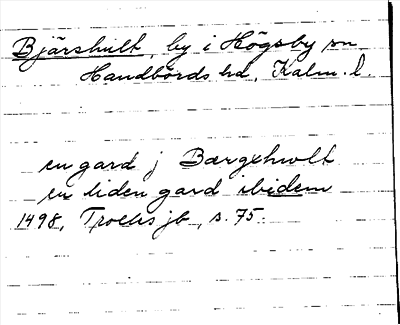 Bjärshult, by i Högsby sn
Handbörds hd, Kalm. l.
en gard j Bærgxhwolt
en liden gard ibidem
1498, Trolles jb, s. 75.